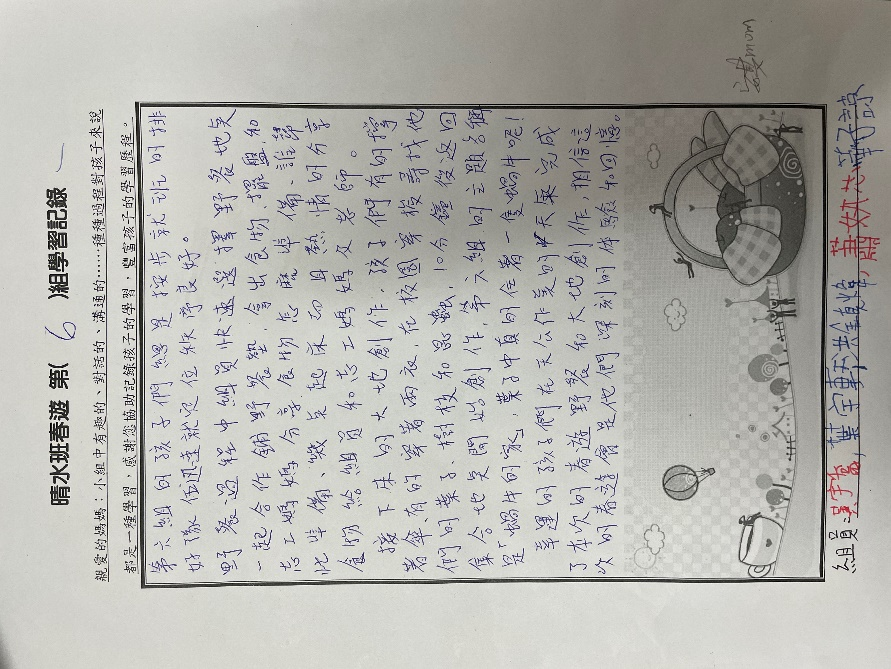 晴水班春遊 第( 6 )組學習記錄
親愛的媽媽:小組中有趣的、對話的、溝通的……種種過程對孩子來說
都是一種學習,感謝您協助記錄孩子的學習,豐富孩子的學習歷程。
第六組的孩子們總是按步就班的排
好隊伍迅速就定位秩序良好。
野餐過程中組員快速選擇野餐地點
一起合作鋪野餐墊,拿出食物擺盤,和
志工媽媽分享食物怎麼準備、誰幫
忙準備、幾點起床而且熱情的分享
食物給組員和志工媽媽及老師。
接下來的大地創作,孩子們有的撐
著傘、有的穿著雨衣,在校園穿梭尋找他
們的葉子、樹枝和昆蟲,10分鐘後返回
集合地點開始創作,第六組的主題名稱
是「蝸牛的家」,葉子中真的住著一隻蝸牛呢!
幸運的孩子們在天公作美的一天來完成
了本次的春遊野餐和大地創作,相信這
次的春遊會是他們深刻的體驗和回憶。
mom
組員: